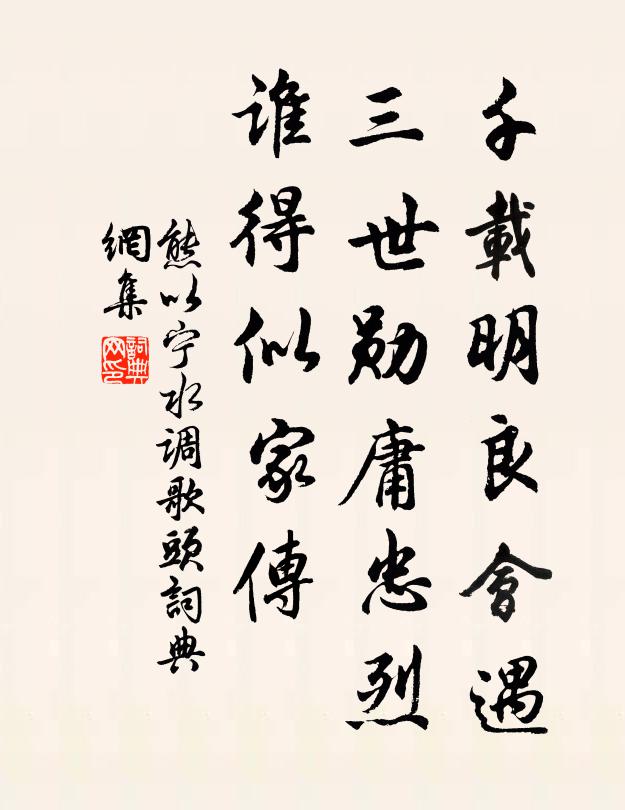 千載明良會遇
三世勋庸忠烈
誰得似家傳
熊以宁水调歌頭詞典
網集
詞典网印